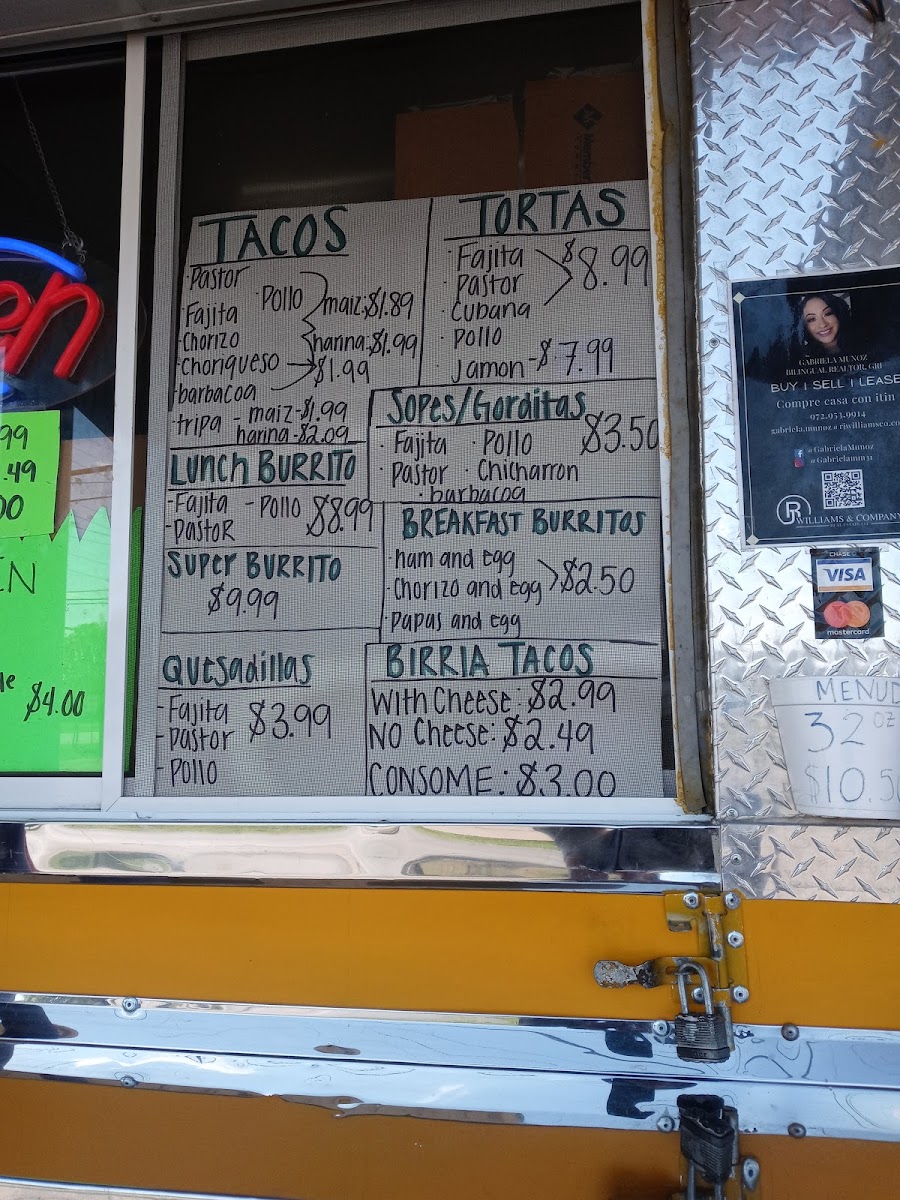 TACOS
· Pastor
· Fajita · Pollo maiz: $1.89
· Chorizo harina: $1.99
· Choriqueso → $1.99
· barbacoa
· tripa - maiz - $1.99
harina - $2.09
LUNCH BURRITO
- Fajita - Pollo $8.99
- PastoR
SUPER BURRITO
$9.99
QUESADILLAS
- Fajita $3.99
- Pastor
- Pollo
TORTAS
· Fajita $8.99
· Pastor
· Cubana
· Pollo
· Jamon - $7.99
Sopes/Gorditas
· Fajita · Pollo $3.50
· Pastor · Chicharron
· barbacoa
BREAKFAST BURRITOS
· ham and egg
· Chorizo and egg > $2.50
· Papas and egg
BIRRIA TACOS
With Cheese: $2.99
No Cheese: $2.49
CONSOME: $3.00
en
99
.49
00
EN
$4.00
GABRIELA MUNOZ
BILINGUAL REALTOR, GRI
BUY I SELL I LEASE
Compre casa con itin
972.953.9914
@GabrielaMunoz
WILLIAMS & COMPANY
CHASE
VISA
mastercard
MENUD
32 oz
$10.50